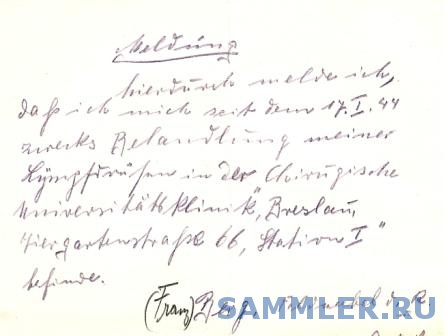 Meldung
hierdurch melde ich,
daß ich mich seit dem 17.I.44
zwecks Behandlung meiner
Lympfdrüsen in der Chirugische
Universitätsklinik, Breslau,
Tiergartenstraße 66, Station I"
befinde.
(Franz) Berg,
SAMMLER.RU